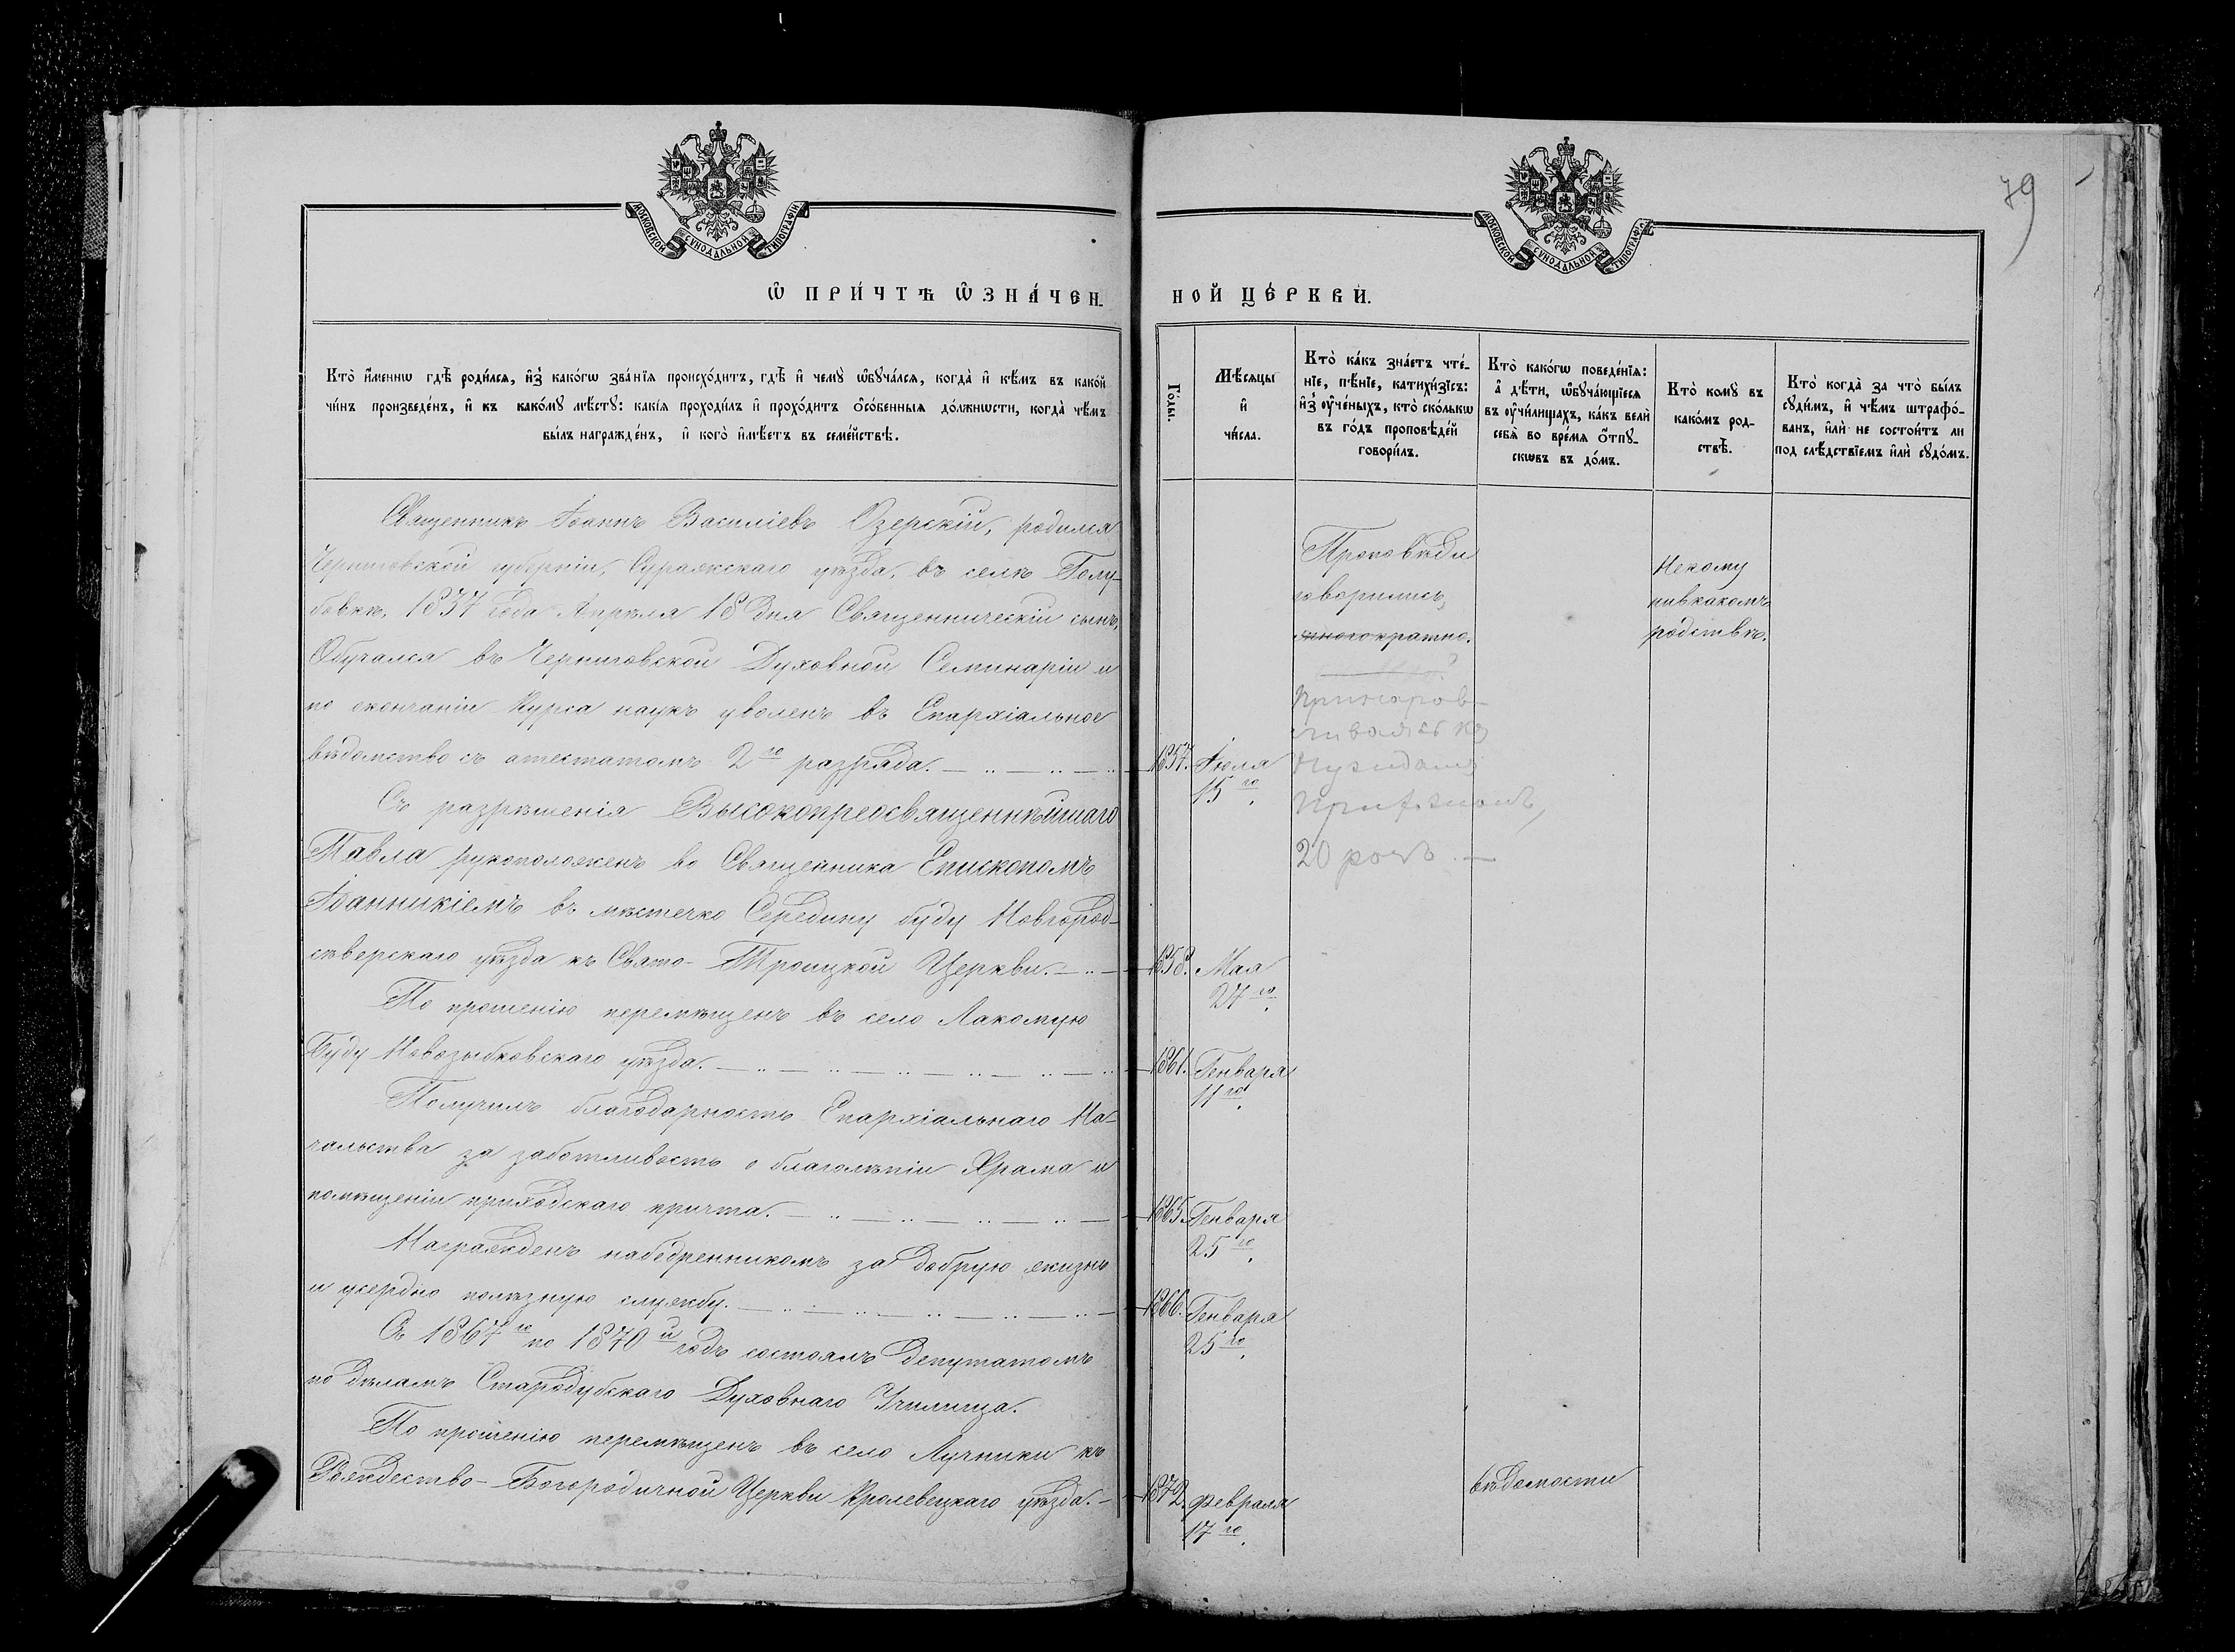 79
МОСКОВСКОЙ СУНОДАЛЬНОЙ ТИПОГРАФІИ
МОСКОВСКОЙ СУНОДАЛЬНОЙ ТИПОГРАФІИ
Ѽ ПРИ́ЧТѢ Ѿ́ЗНА́ЧЕН-
НОЙ ЦЕ́РКВИ.
Кто̀ и҆́меннѡ гдѣ̀ роди́лсѧ, и҆з̾ како́гѡ зва́нїѧ происхо́дитъ, гдѣ̀ и҆ чемꙋ̀ ѡ҆бꙋча́лсѧ, когда̀ и҆ кѣ́мъ въ како́й
чи́нъ произведе́нъ, и҆ къ како́мꙋ мѣ́стꙋ: какі̑ѧ проходи́лъ и҆ прохо́дитъ ѻ҆со́бенныѧ до́лжности, когда̀ чѣ́мъ
бы́лъ награжде́нъ, и҆ кого̀ и҆мѣ́етъ въ семе́йствѣ.
Го́ды.
Мѣ́сѧцы
и҆
чи́сла.
Кто̀ ка́къ зна́етъ чте́-
нїе, пѣ́нїе, катихи́зїсъ:
и҆з̾ ᲂу҆че́ныхъ, кто̀ ско́лькѡ
въ го́дъ проповѣ́дей
говори́лъ.
Кто̀ како́гѡ поведе́нїѧ:
а҆ дѣ́ти, ѡ҆бꙋча́ющїесѧ
въ ᲂу҆чи́лищахъ, ка́къ велѝ
себѧ̀ во вре́мѧ ѿпꙋ-
сковъ въ до́мъ.
Кто̀ комꙋ̀ въ
како́мъ род-
ствѣ̀.
Кто̀ когда̀ за что̀ бы́лъ
сꙋди́мъ, и҆ чѣ́мъ штрафо́-
ванъ, и҆лѝ не состои́тъ ли
под слѣ́дствїемъ и҆лѝ сꙋдо́мъ.
Священникъ Іоаннъ Василіевъ Озерскій, родился
Черниговской губерніи, Суражскаго уѣзда, въ селѣ Голу-
бовкѣ, 1837 года Апрѣля 18 дня Священническій сынъ,
Обучался въ Черниговской Духовной Семинаріи и
по окончаніи Курса наукъ уволенъ въ Епархіальное
вѣдомство съ атестатомъ 2го разряда.
1857. Іюля
15го.
Съ разрѣшенія Высокопреосвященнѣйшаго
Павла рукоположенъ во Священника Епископомъ
Іоанникіемъ въ мѣстечко Середину буду Новгород-
сѣверскаго уѣзда къ Свято-Троицкой Церкви.
1858. Мая
27го.
По прошенію перемѣщенъ въ село Лакомую
Буду Новозыбковскаго уѣзда.
1861. Генваря
11го.
Получилъ благодарность Епархіальнаго На-
чальства за заботливость о благолѣпіи Храма и
помѣщеніи приходскаго причта.
1865. Генваря
25го.
Награжденъ набедренникомъ за добрую жизнь
и усердно полезную службу.
1866. Генваря
25го.
Съ 1867го по 1870й годъ состоялъ депутатомъ
по дѣламъ Стародубскаго Духовнаго Училища.
По прошенію перемѣщенъ въ село Лучники къ
Рождество-Богородичной Церкви Кролевецкаго уѣзда.
1872. Февраля
17го.
Проповѣди
говорилисъ,
многократно.
20 разъ.
Некому
нивкакомъ
родствѣ.
вѣдомости